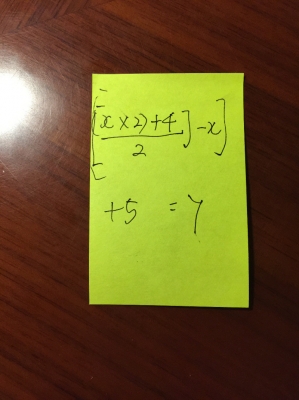 [[(x × 2) + 4] / 2 - x]
+5 = y